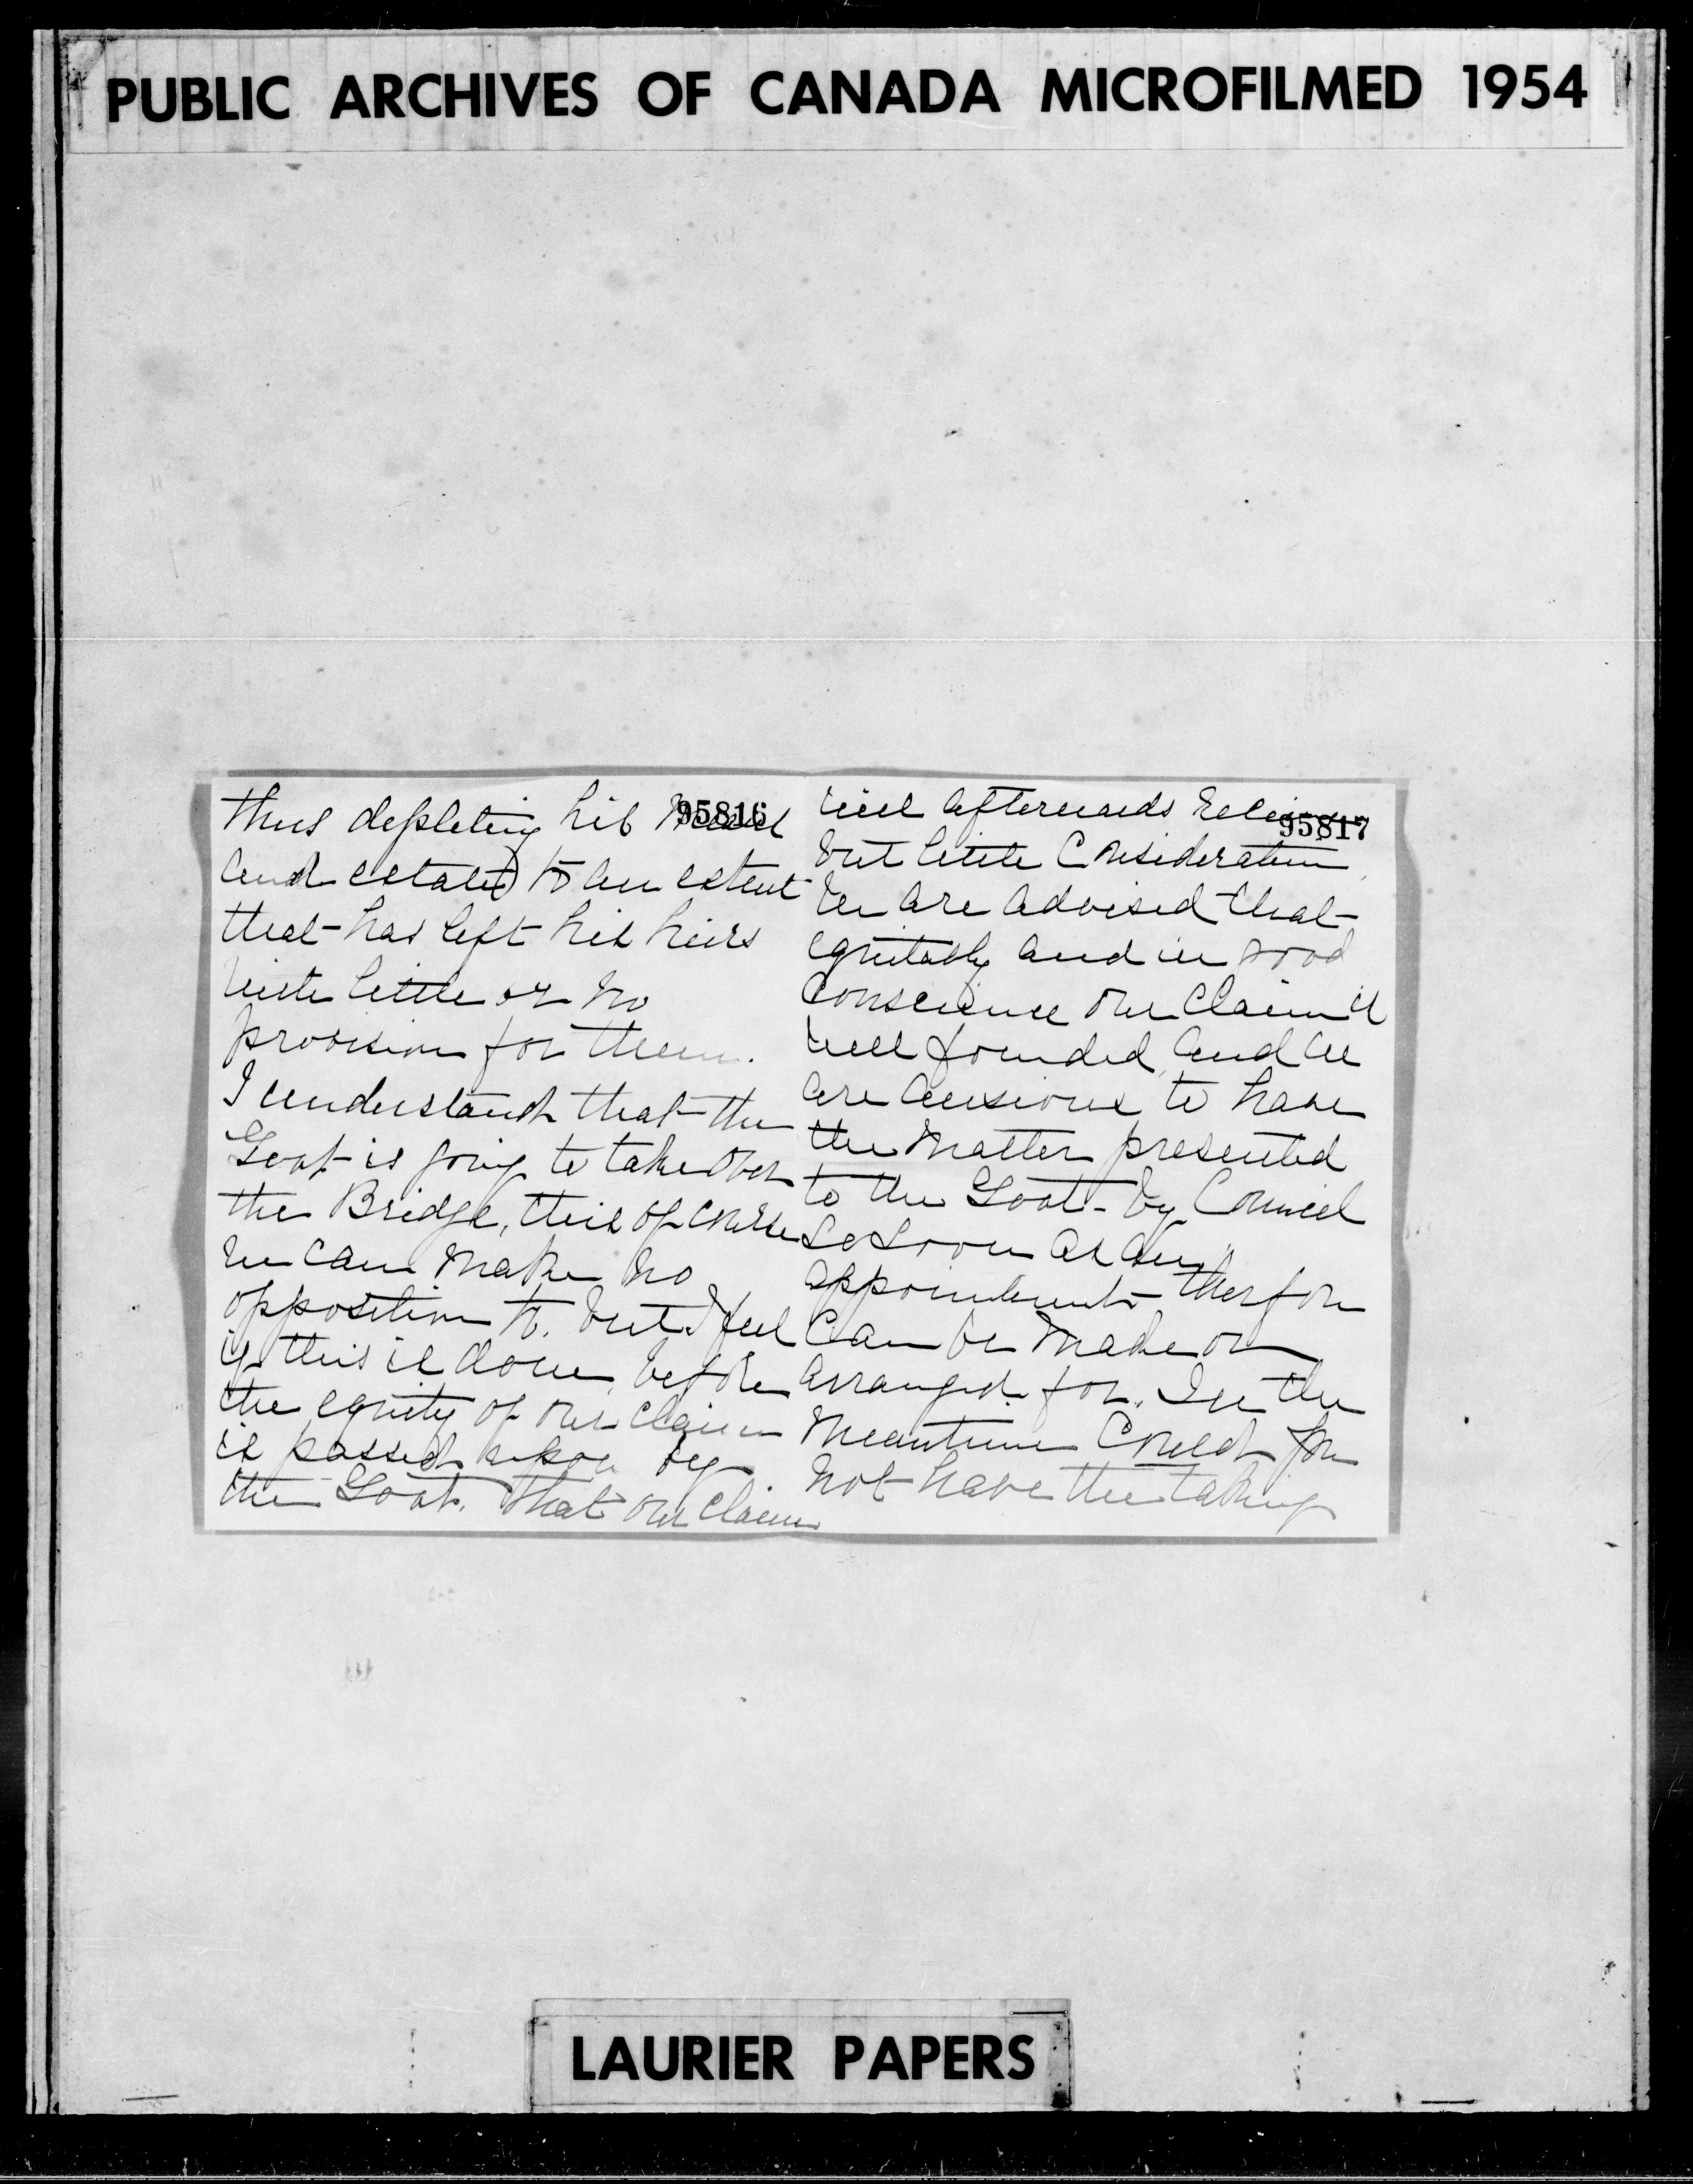 PUBLIC ARCHIVES OF CANADA MICROFILMED 1954
95816
thus depleting his
and estate) to an extent
that has left his heirs
with little or no
provision for them.
I understand that the
Govt is going to take over
the Bridge, this of course
we can make no
opposition to. but I feel
if this is done, before
the equity of our claim
is passed upon by
the Govt. that our claim
95817
will afterwards receive
but little consideration
We are advised that
equitably and in good
conscience our claim is
well founded, and we
are anxious to have
the matter presented
to the Govt- by Council
so soon as an
appointment therfor
can be made or
arranged for. In the
meantime Could you
not have the taking
LAURIER PAPERS